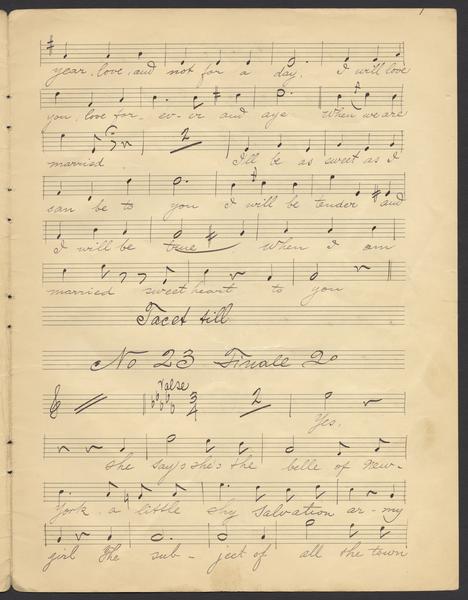 year, love, and not for a day. I will love
you, love for- ev- er and aye When we are
married 2 I'll be as sweet as I
can be to you I will be tender and
I will be true When I am
married sweetheart to you
Tacet till
No 23 Finale 2o
Valse
3 4 2
Yes,
She says she's the belle of New-
York, a little shy Salvation ar- my
girl The sub- ject of all the town